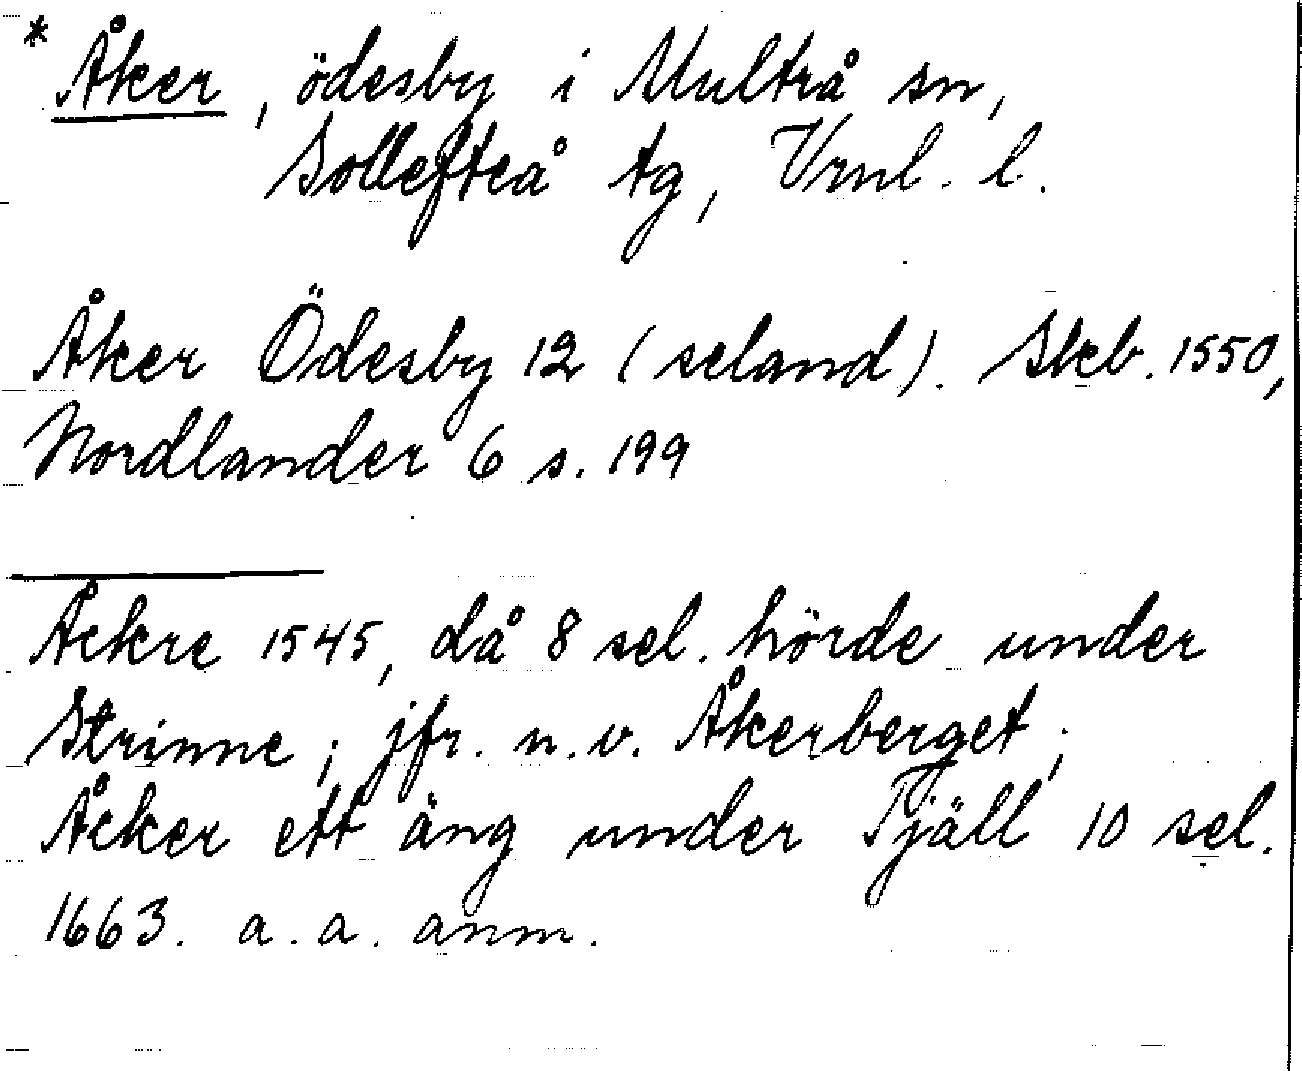 * Åker, ödesby i Multrå sn,
Sollefteå tg, Vrnl. l.
Åker Ödesby 12 (seland). Skb. 1550,
Nordlander 6 s. 199
Åckre 1545, då 8 sel. hörde under
Strinne; jfr. n.v. Åkerberget;
Åcker ett äng under Tjäll 10 sel.
1663. a.a. anm.